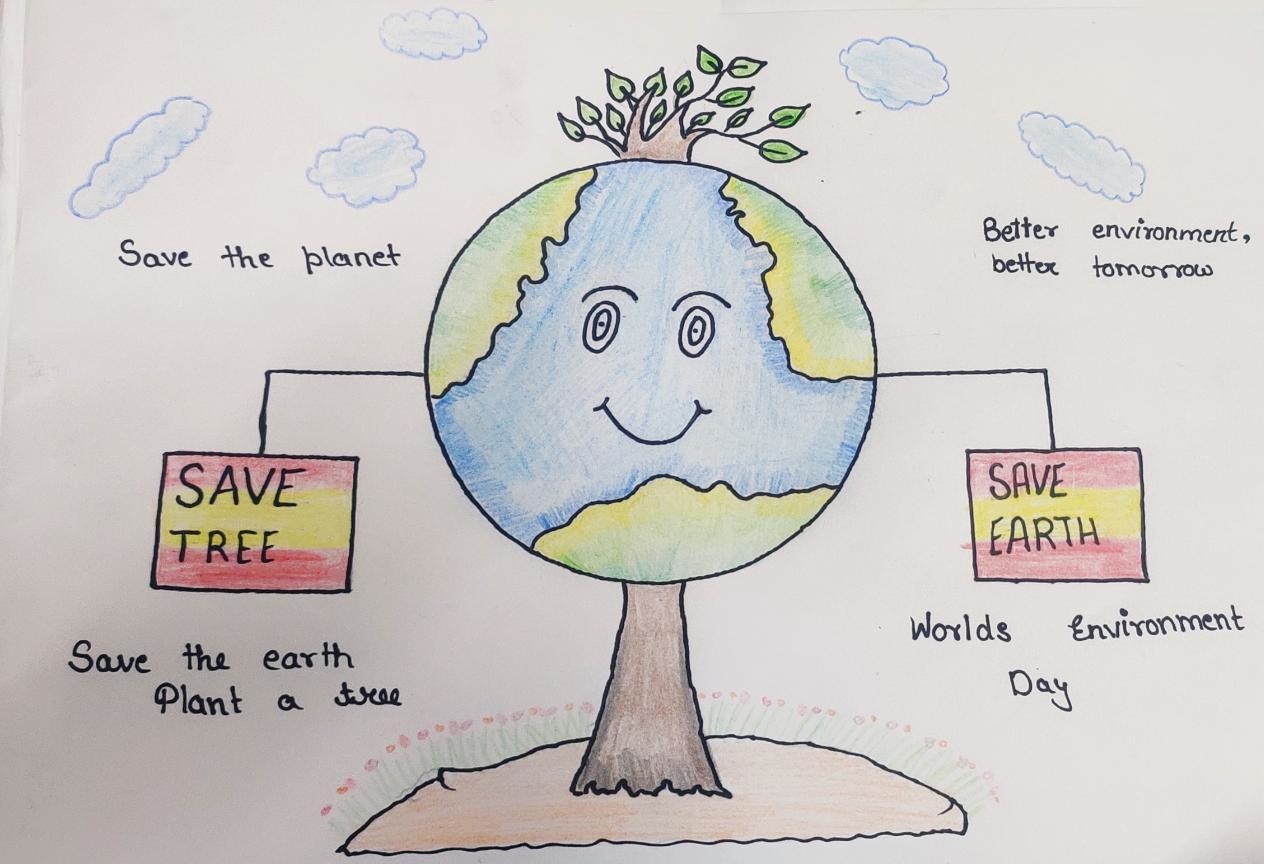 Save the planet
Better environment,
better tomorrow
SAVE
TREE
SAVE
EARTH
Save the earth
Plant a tree
Worlds Environment
Day